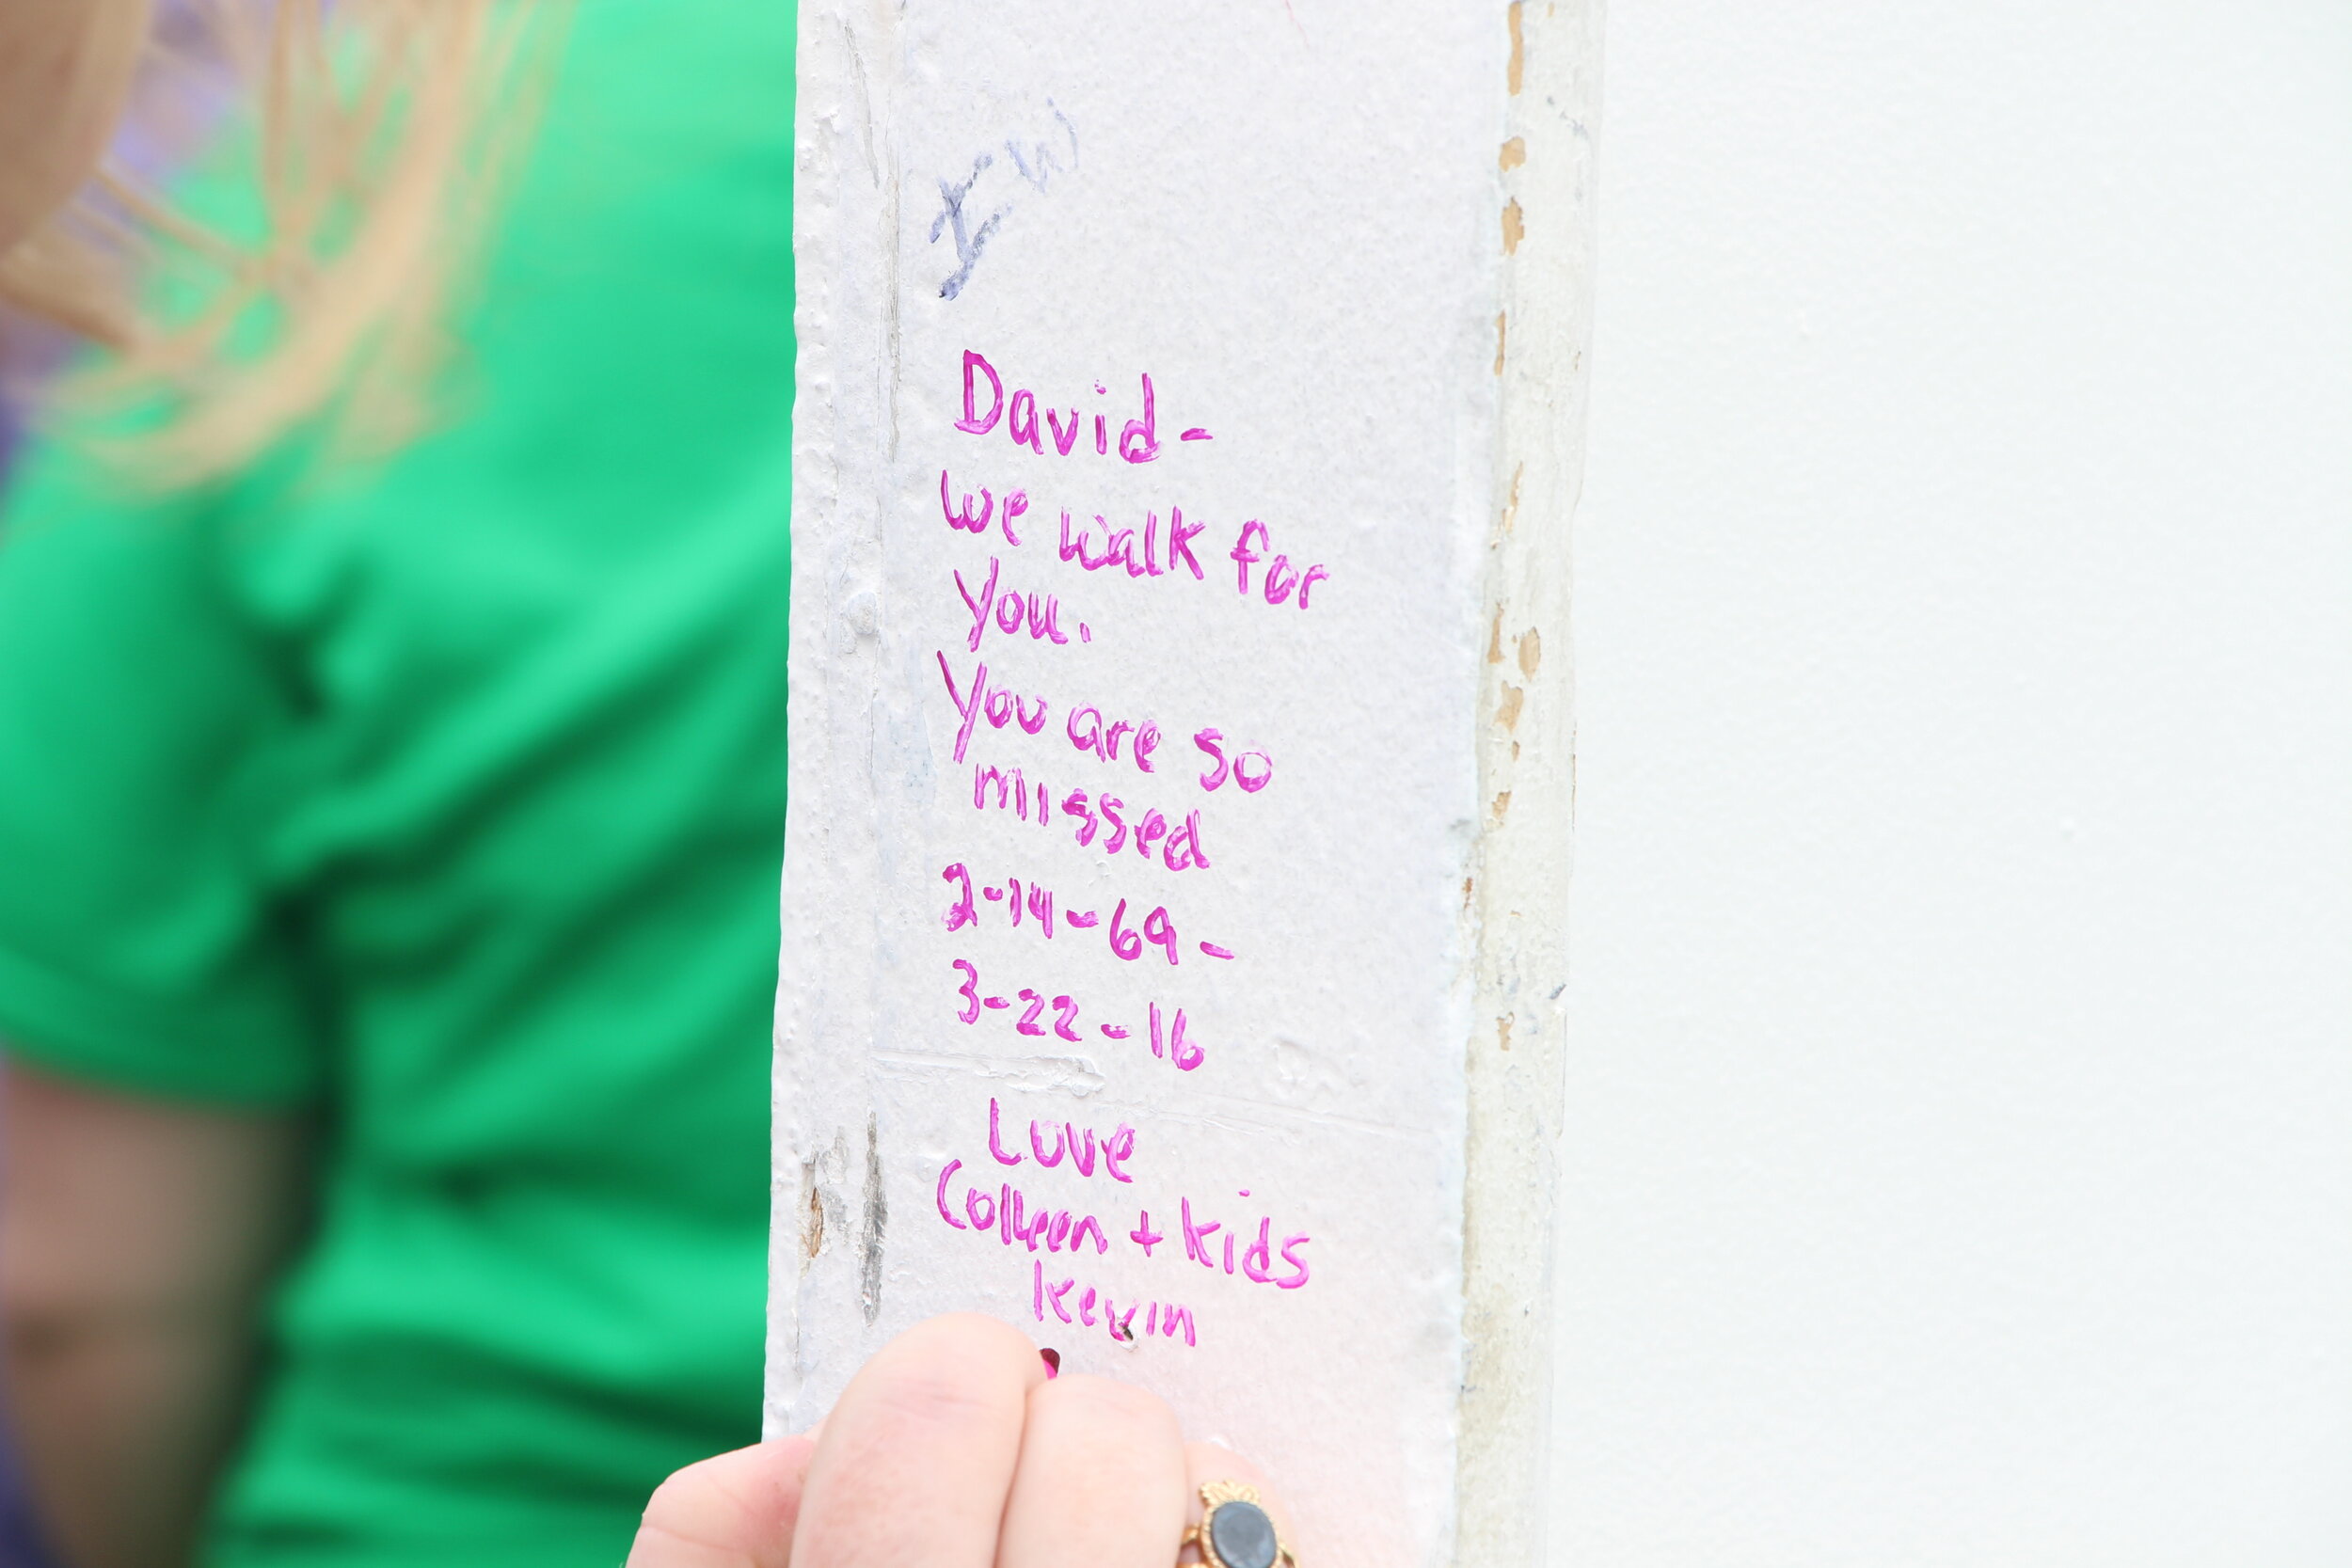 I W
David-
We walk for
you.
You are so
missed
2-14-69-
3-22-16
Love
Colleen + kids
kevin